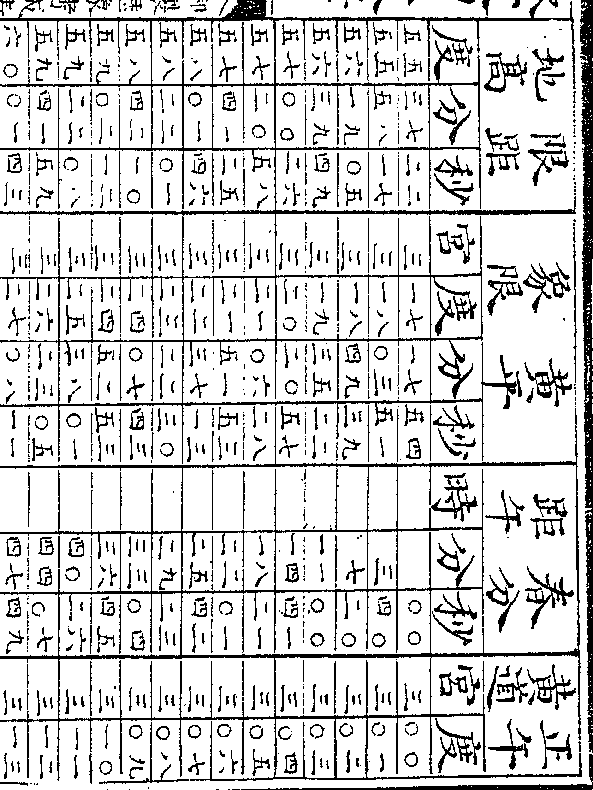 黃道 正午 春分 距午 黃平 象限 限距 地高
度 分 秒 宮 度 分 秒 時 分 秒 宮 度
五五 三七 二二 三 一七 一七 五四 〇〇 三 〇〇
五五 五八 一七 三 一八 〇三 五一 三 四〇 三 〇一
五六 一九 〇五 三 一八 四九 三九 七 二〇 三 〇二
五六 三九 四九 三 一九 三五 二二 一一 〇〇 三 〇三
五七 〇〇 二六 三 二〇 二〇 五七 一四 四一 三 〇四
五七 二〇 五八 三 二一 〇六 二八 一八 二一 三 〇五
五七 四一 二五 三 二一 五一 五三 二二 〇一 三 〇六
五八 〇一 四六 三 二二 三七 一三 二五 四二 三 〇七
五八 二二 〇一 三 二三 二二 三〇 二九 二三 三 〇八
五八 四二 一〇 三 二四 〇七 四三 三三 〇四 三 〇九
五九 〇二 一二 三 二四 五二 五三 三六 四五 三 一〇
五九 二二 〇八 三 二五 三八 〇一 四〇 二六 三 一一
五九 四一 五九 三 二六 二三 〇五 四四 〇七 三 一二
六〇 〇一 四三 三 二七 〇八 一一 四七 四九 三 一三